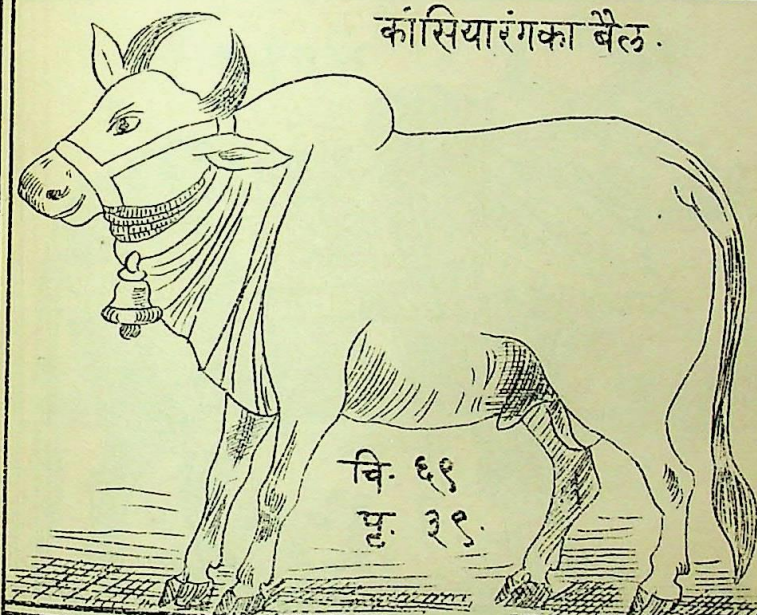 कांसियारंगका बैल.
चि. ६९
पृ. ३९.